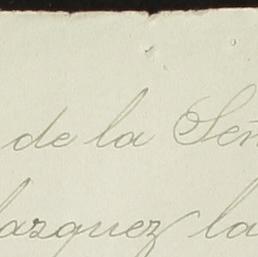 de la Señ
lazquez la